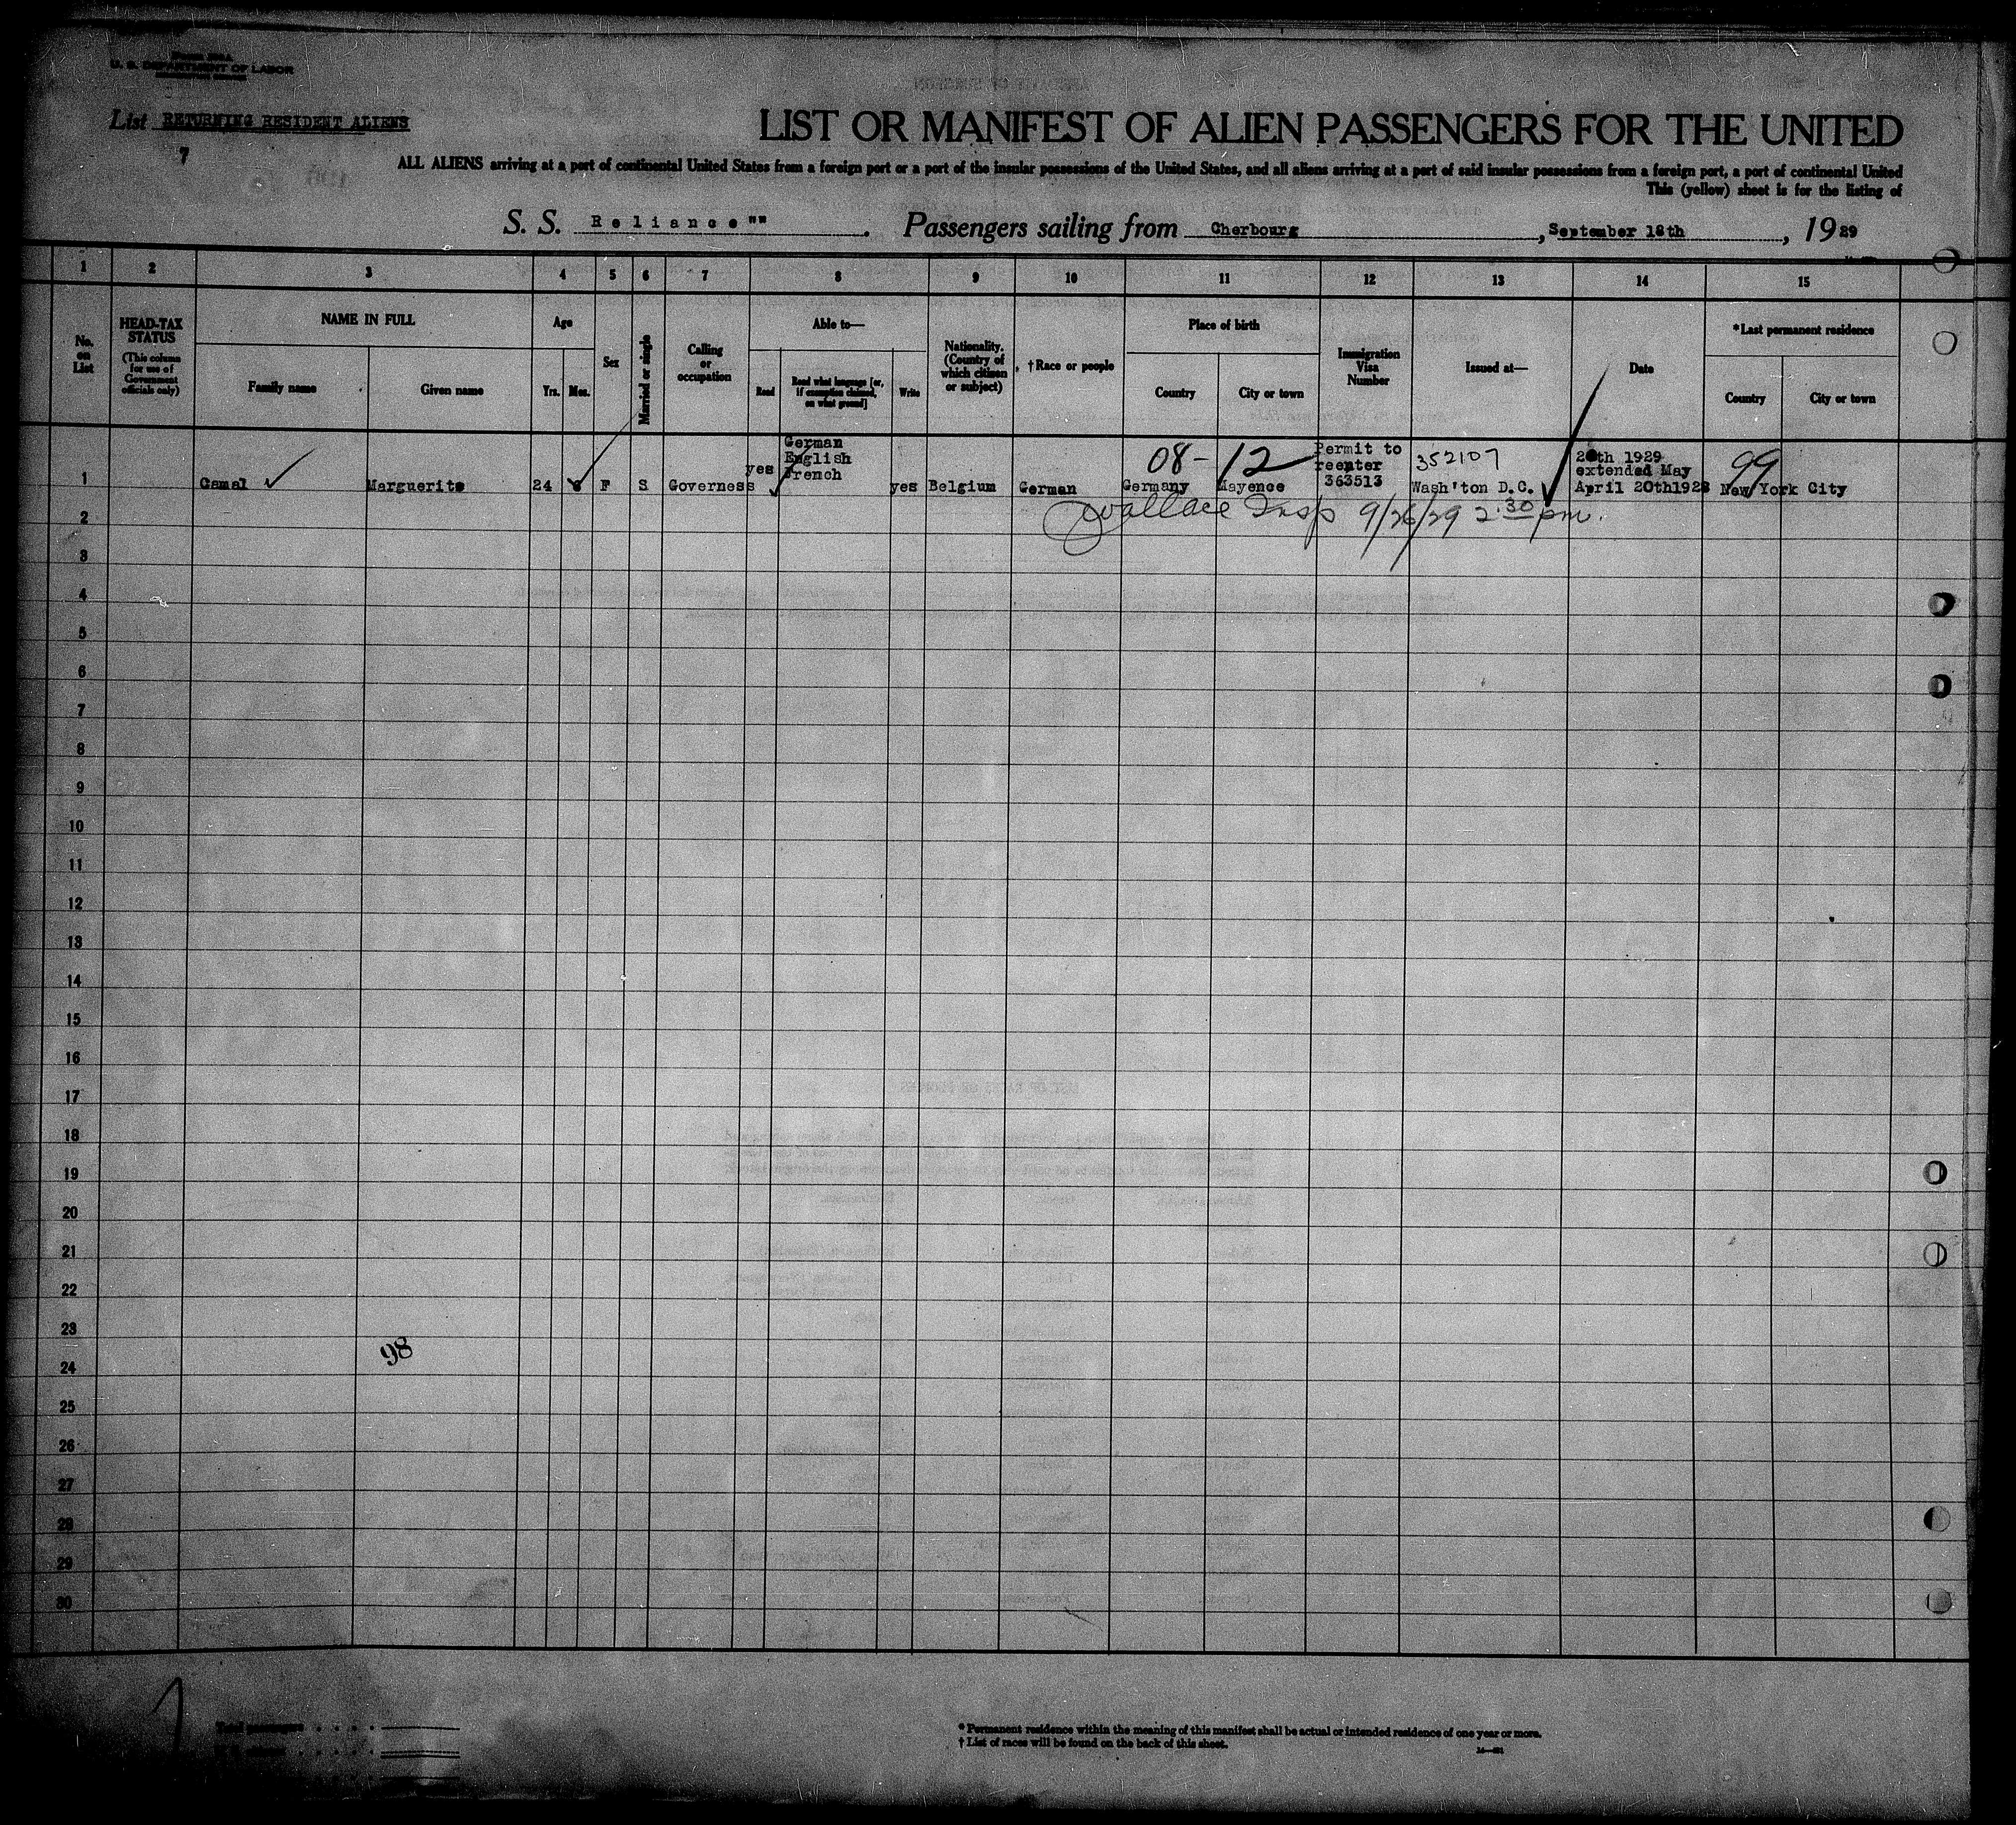 U. S. DEPARTMENT OF LABOR
List RETURNING RESIDENT ALIENS
7
LIST OR MANIFEST OF ALIEN PASSENGERS FOR THE UNITED
ALL ALIENS arriving at a port of continental United States from a foreign port or a port of the insular possessions of the United States, and all aliens arriving at a port of said insular possessions from a foreign port, a port of continental United
This (yellow) sheet is for the listing of
S. S. Reliance"" . Passengers sailing from Cherbourg , September 18th , 19 29
1 2 3 4 5 6 7 8 9 10 11 12 13 14 15
No. on List
HEAD-TAX STATUS
(This column for use of Government officials only)
NAME IN FULL
Family name Given name
Age
Yrs. Mos.
Sex
Married or single
Calling or occupation
Able to—
Read
Read what language [or, if exemption claimed, on what ground]
Write
Nationality. (Country of which citizen or subject)
† Race or people
Place of birth
Country City or town
Immigration Visa Number
Issued at—
Date
*Last permanent residence
Country City or town
German
English
French
08-12
Permit to
reenter
363513
352107
20th 1929
extended May
99
1 Camal Marguerite 24 F S Governess yes yes Belgium German Germany Mayence Wash'ton D.C. April 20th1928 New York City
2 Wallace Insp 9/26/29 2.30 pm.
3
4
5
6
7
8
9
10
11
12
13
14
15
16
17
18
19
20
21
22
23
98
24
25
26
27
28
29
30
Total passengers
* Permanent residence within the meaning of this manifest shall be actual or intended residence of one year or more.
† List of races will be found on the back of this sheet.